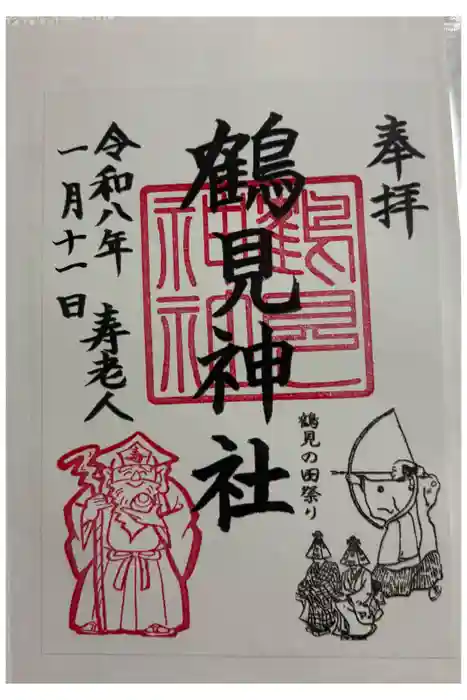 奉拝
鶴見神社
鶴見の田祭り
令和八年
一月十一日
寿老人
鶴見
神社
寿